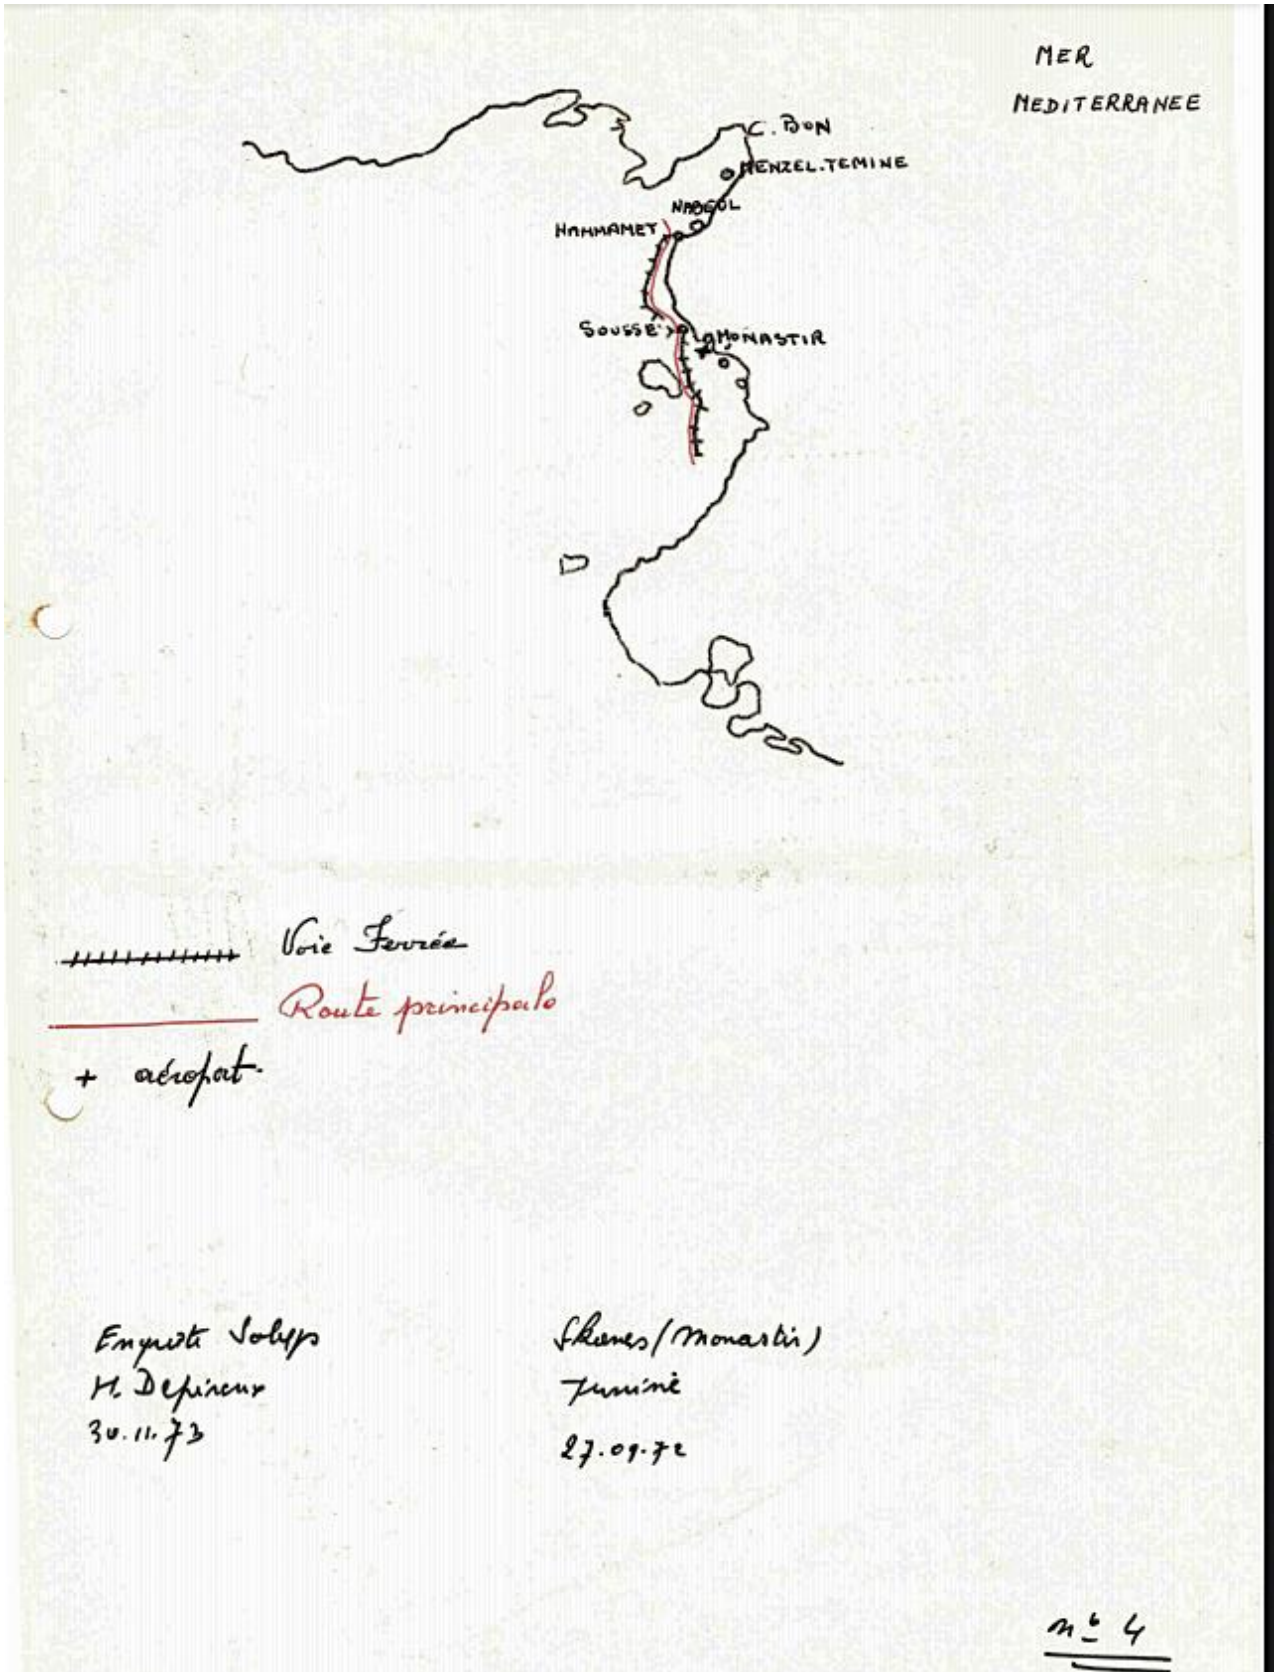 MER
MEDITERRANEE
C. BON
MENZEL.TEMINE
NABEUL
HAMMAMET
SOUSSE
MONASTIR
Voie Ferrée
Route principale
+ aéroport.
Enquête Sobeps
H. Depireux
30.11.73
Skanes (Monastir)
Tunisie
27.09.72
n° 4